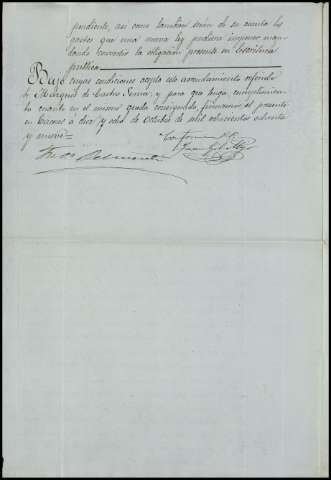 pendiente, asi como tambien serán de su cuenta los
gastos que una nueva ley pudiera imponer man-
dando convertir la obligacion presente en Escritura
publica
Bajo cuyas condiciones acepta este arrendamiento el Señor
Marques de Castro Serna, y para que tenga cumplimien-
to cuanto en el mismo queda consignado, firmamos el presente
en Caceres á diez y ocho de Octubre de mil ochocientos ochenta
y nueve=
Conforme
Juan
Belmonte